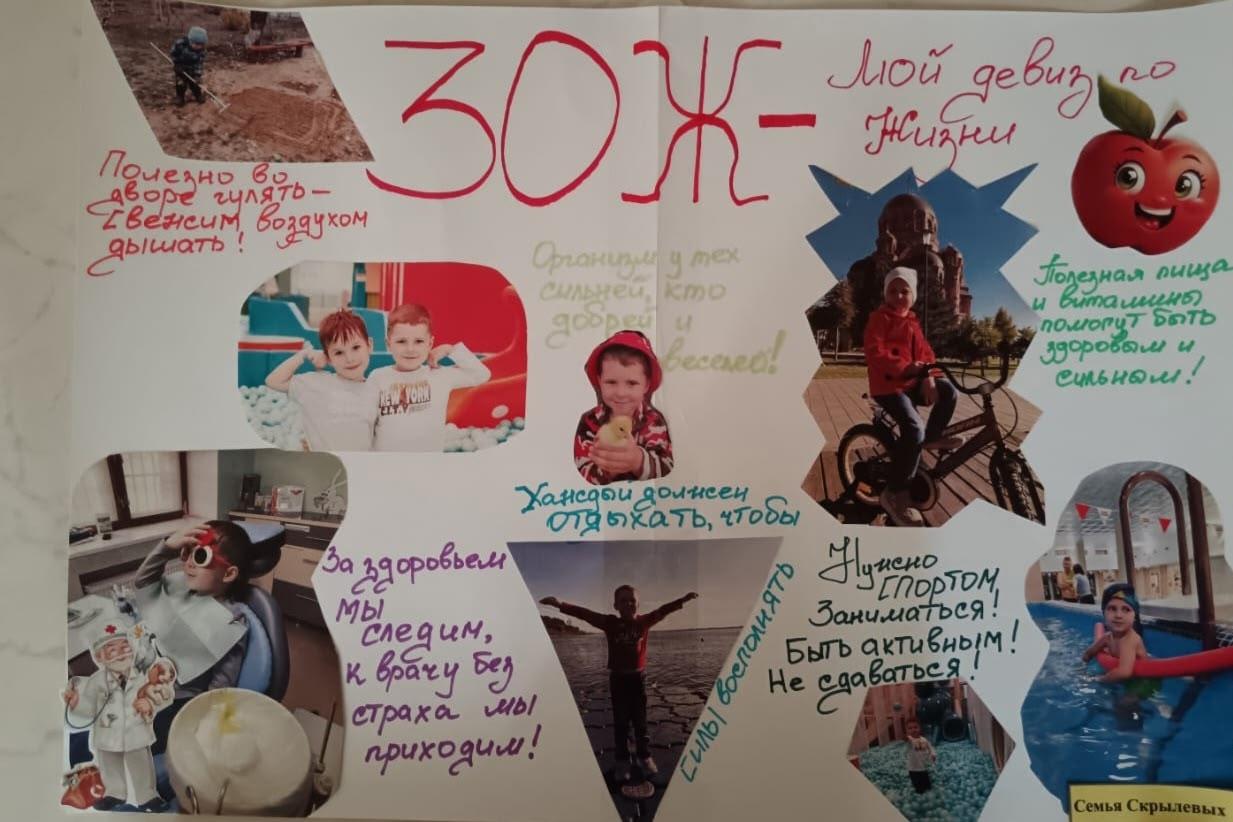 ЗОЖ-
Мой девиз по
Жизни
Полезно во
дворе гулять-
Свежим воздухом
дышать!
Организм у тех
сильней, кто
добрей и
веселей!
Полезная пища
и витамины
помогут быть
здоровым и
сильным!
NEW YORK
Каждый должен
отдыхать, чтобы
силы восполнять
За здоровьем
мы
следим,
к врачу без
страха мы
приходим!
Нужно
спортом
Заниматься!
Быть активным!
Не сдаваться!
Семья Скрылевых